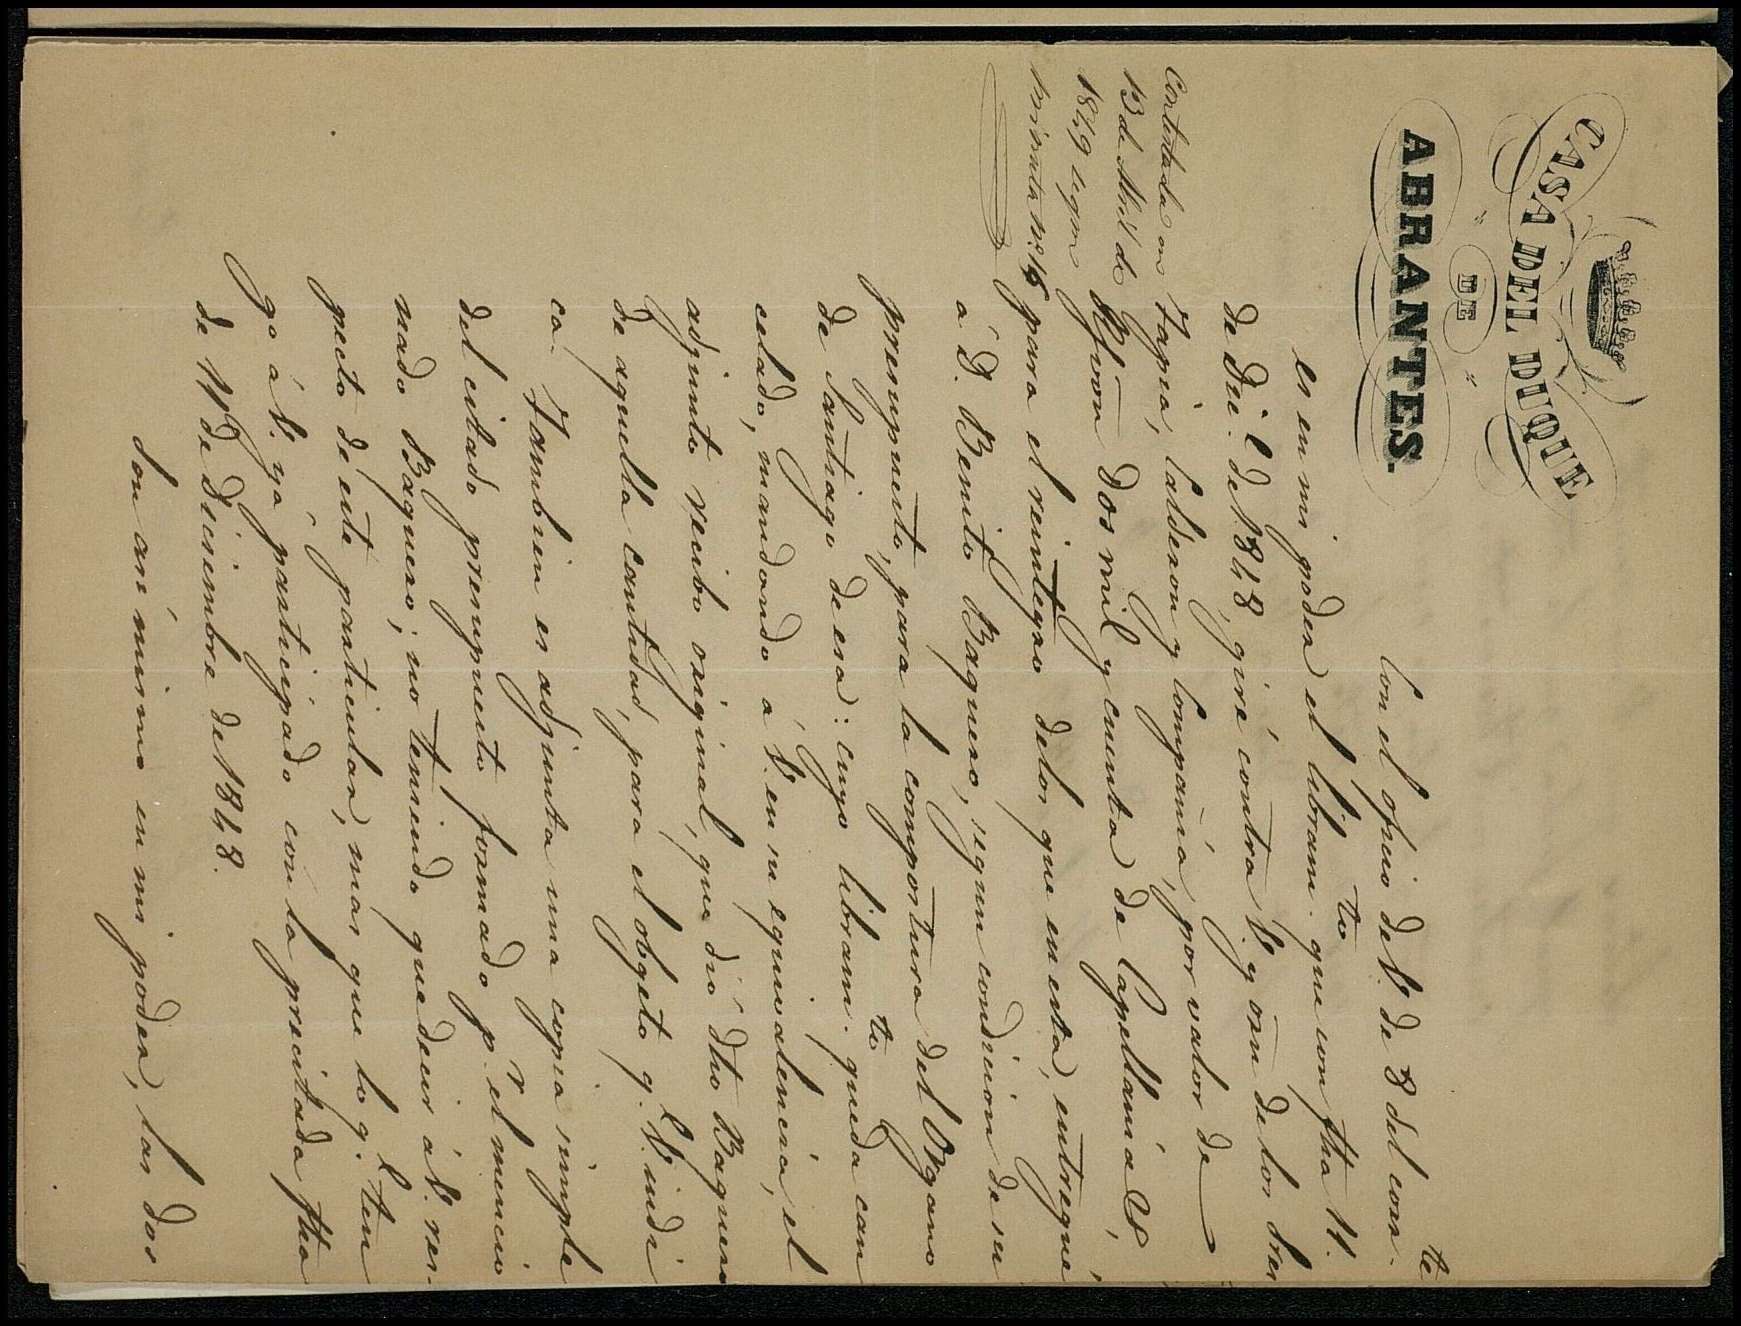 CASA DEL DUQUE
DE
ABRANTES.
Contestada en
13 de Abril de
1849 segun
minuta nº 16
Con el oficio de V. de 8 del corr.te
es en mi poder el libram.to que con fha 11.
de Dic.e de 1848, giré contra V. y orn de los Sres
Tapia, Calderon y Compañia, por valor de
Rs von Dos mil y cuenta de Capellania &,
para el reintegro delos que en esta, entregue
á D. Benito Baquero, segun condicion de su
presupuesto, para la compostura del Organo
de Santiago de esa: cuyo libram.to queda can
celado, mandando á V. en su equivalencia, el
adjunto recibo original, que dió dho Baquero
de aquella cantidad, para el obgeto q.e V. indi
ca. Tambien es adjunta una copia simple
del citado presupuesto formado p.r el mencio
nado Baquero; no teniendo que decir á V. res-
pecto de este particular, mas que lo q.e ten
go á V. ya participado con la precitada fha
de 11 de Diciembre de 1848.
Son asi mismo en mi poder, las dos